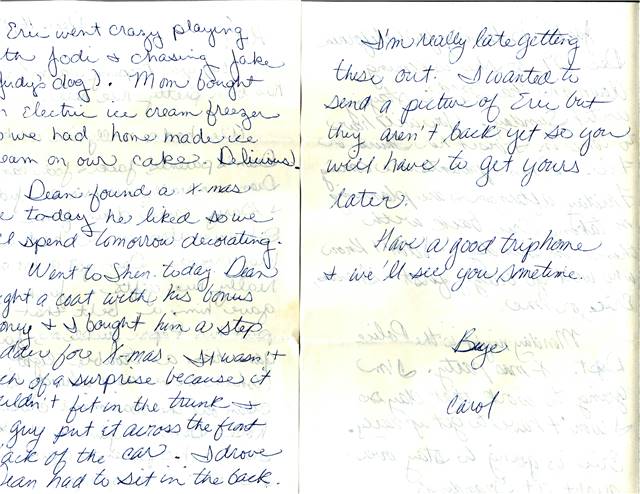 Eric went crazy playing
th Jodi & chasing Jake
Judy's dog). Mom bought
n Electric ice cream freezer
o we had home made ice
eam on our cake. Delicious!
Dean found a X-mas
e today he liked so we
'll spend tomorrow decorating.
Went to Shen. today Dean
ght a coat with his bonus
oney & I bought him a step
dder fore X-mas. It wasn't
ch of a surprise because it
uldn't fit in the trunk &
guy put it across the front
ack of the car. I drove
ean had to sit in the back.
I'm really late getting
these out. I wanted to
send a picture of Eric but
they aren't back yet so you
will have to get yours
later.
Have a good trip home
& we'll see you smetime.
Bye
Carol